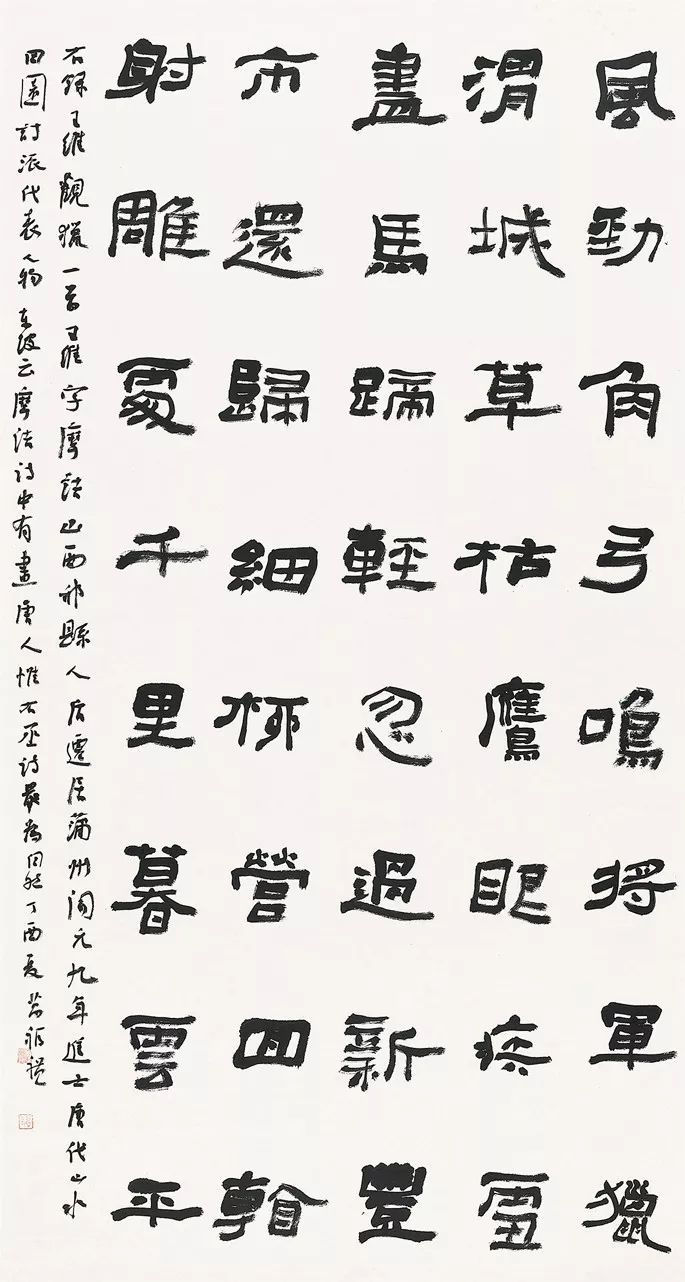 風勁角弓鳴將軍獵
渭城草枯鷹眼疾雪
盡馬蹄輕忽過新豐
市還歸細柳營回看
射雕處千里暮雲平
右錄王維觀獵一首王維字摩詰山西祁縣人后遷居蒲州開元九年進士唐代山水
田園詩派代表人物東坡云摩詰詩中有畫唐人惟右丞詩最為然丁酉夏